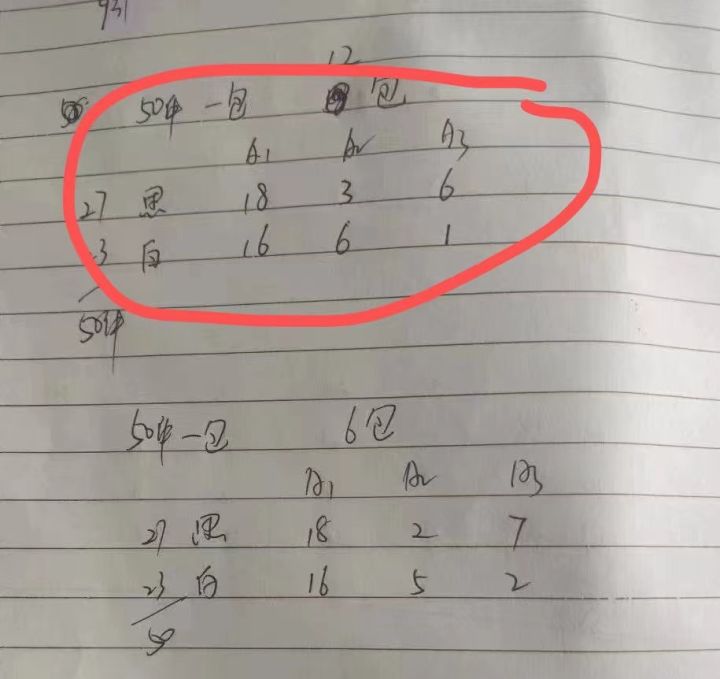 12
50件一包 包
A1 A2 A3
27 黑 18 3 6
23 白 16 6 1
50件
50件一包 6包
A1 A2 A3
27 黑 18 2 7
23 白 16 5 2
50